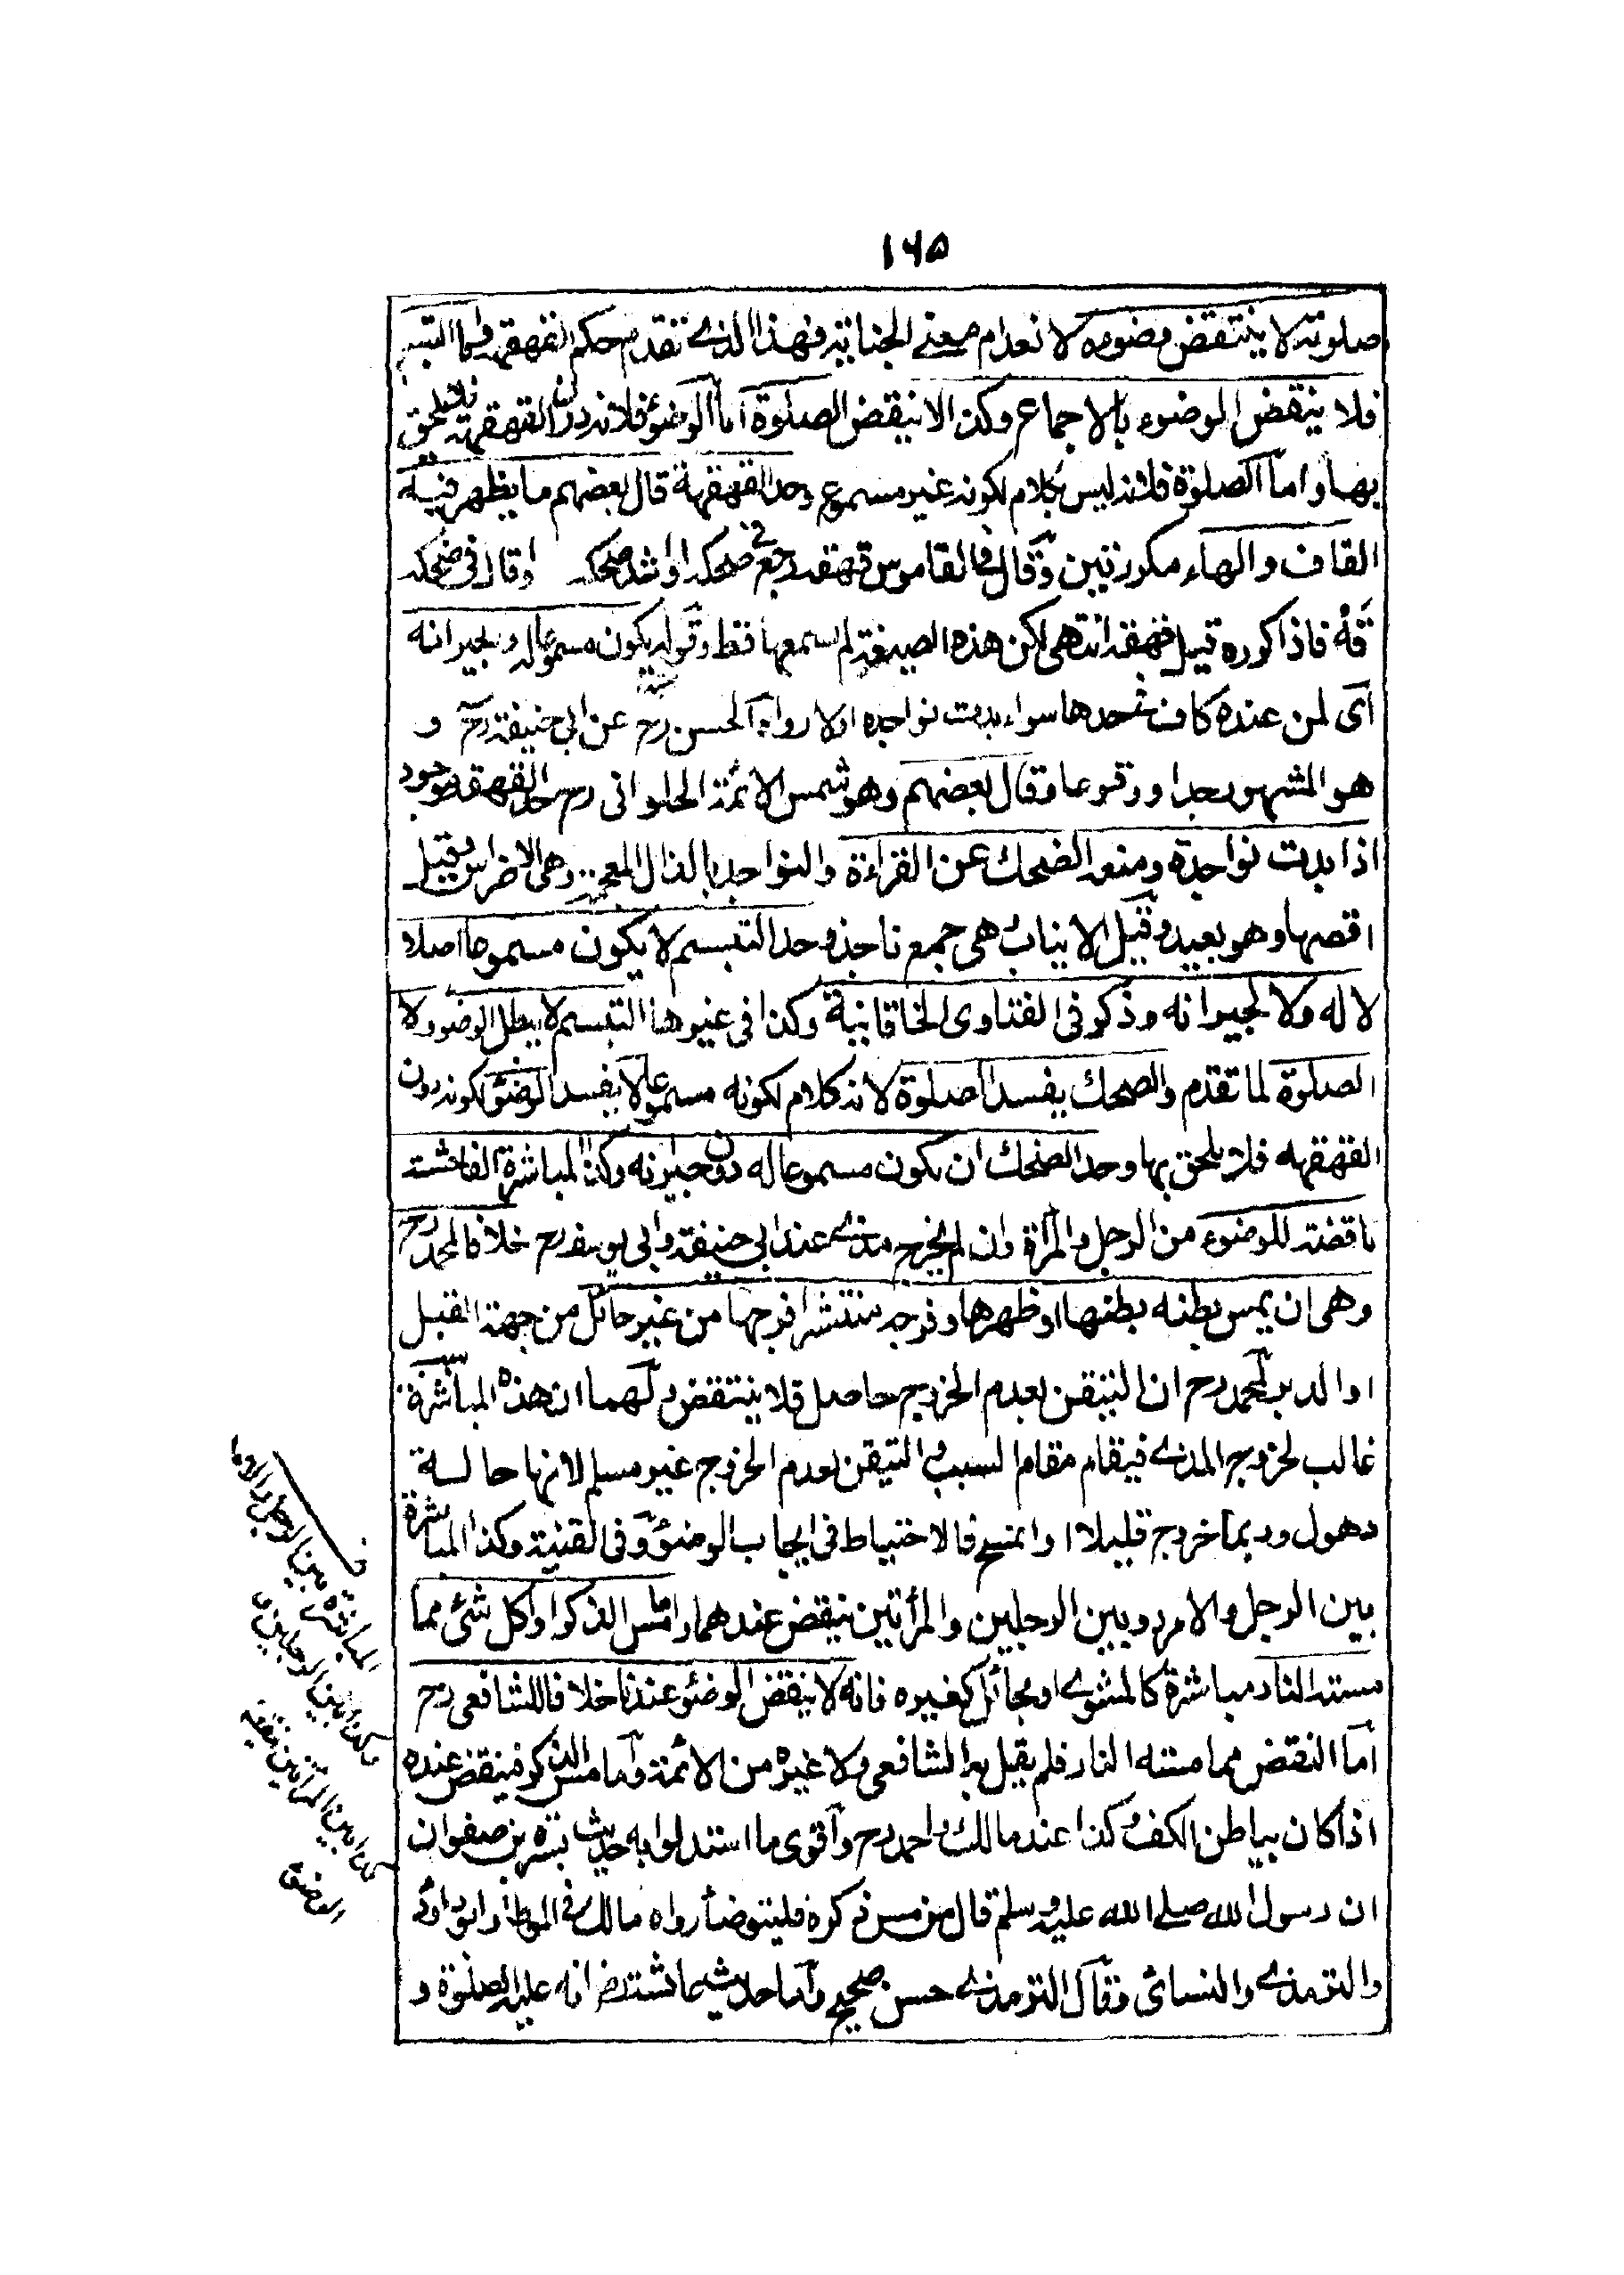 ١٦٥
صلوته لا ينتقض وضوءه لانعدام معنى الجناية فهذا الذے تقدم حكم القهقهة واما التبسم
فلا ينقض الوضوء بالاجماع وكذا لا ينقض الصلوة اما الوضؤ فلانه دون القهقهة فلا يلحق
بها واما الصلوة فلانه ليس بكلام لكونه غير مسموع وحد القهقهة قال بعضهم ما يظهر فيه
القاف والهاء مكررتين وقال فى القاموس قهقه رجع فى ضحكه او اشتد ضحكه او قال فى ضحكه
قه فاذا كرره قيل قهقه انتهى لكن هذه الصيغة لم يسمعها فقط وقوله يكون مسموعا له ولجيرانه
اى لمن عنده كاف بحدها سواء بدت نواجده اولا رواه الحسن رح عن ابى حنيفة رح و
هو المشهور وقال بعضهم وهو شمس الائمة الحلوانى رح حد القهقهة
اذا بدت نواجده ومنعه الضحك عن القراءة والنواجد بالذال المعجمة وهى الاضراس وقيل
اقصها وهو بعيد وقيل الانياب هى جمع ناجذ وحد التبسم لا يكون مسموعا اصلا
لا له ولا لجيرانه وذكر فى الفتاوى الخاقانية وكذا فى غيرها التبسم لا يبطل الوضؤ ولا
الصلوة لما تقدم والضحك يفسد الصلوة لانه كلام لكونه مسموعا لا يفسد الوضؤ لكونه دون
القهقهه فلا يلحق بها وحد الضحك ان يكون مسموعا له دون جيرانه وكذا المباشرة الفاحشة
ناقضة للوضوء من الرجل والمرأة وان لم يخرج مذى عند ابى حنيفة وابى يوسف رح خلافا لمحمد رح
وهى ان يمس بطنه بطنها او ظهرها وفرجه منتشرا فرجها من غير حائل من جهة القبل
او الدبر لمحمد رح ان التيقن بعدم الخروج حاصل فلا ينتقض ولهما ان هذه المباشرة سبب
غالب لخروج المذے فيقام مقام السبب والتيقن بعدم الخروج غير مسلم لانها حالة
ذهول وربما خروج قليلا وانمسح فالاحتياط فى ايجاب الوضؤ وفى القنية وكذا المباشرة
بين الرجل والامرد وبين الرجلين والمرأتين ينقض عندهما واما مس الذكر او اكل شئ مما
مسته النار مباشرة كالمشوے او بحائل كغيره فانه لا ينقض الوضؤ عندنا خلافا للشافعى رح
اما النقض مما مسته النار فلم يقل به الشافعى ولا غيره من الائمة واما مس الذكر فينقض عنده
اذا كان بباطن الكف وكذا عند مالك واحمد رح واقوى ما استدلوا به حديث بسرة بن صفوان
ان رسول الله صلى الله عليه وسلم قال من مس ذكره فليتوضأ رواه مالك فى الموطا وابو داؤد
والترمذے والنسائى وقال الترمذے حسن صحيح واما حديث عائشة رض انه عليه الصلوة و
المباشرة بين الرجل والامرد
وكذا بين الرجلين
وكذا بين المرأتين ينقض
الوضؤ